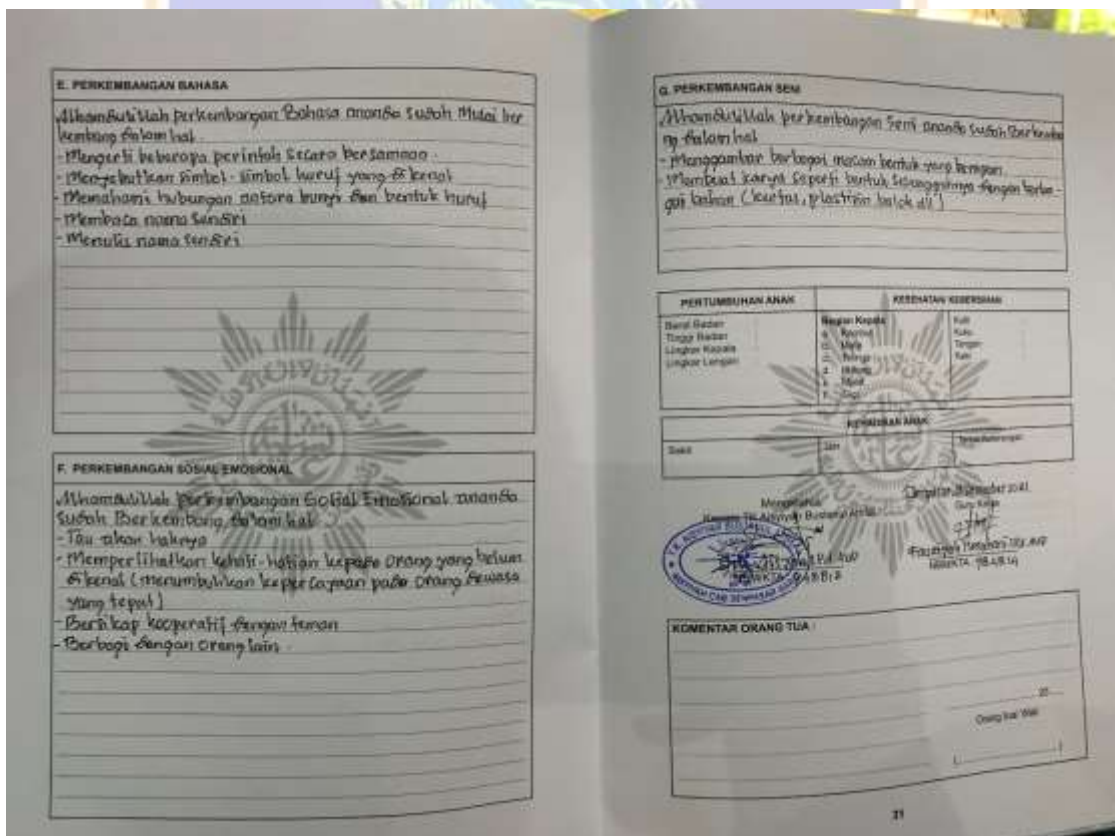 E. PERKEMBANGAN BAHASA
Alhamdulillah perkembangan Bahasa ananda sudah Mulai ber
kembang dalam hal.
- Mengerti beberapa perintah secara bersamaan.
- Menyebutkan simbol-simbol huruf yang dikenal
- Memahami hubungan antara bunyi dan bentuk huruf
- Membaca nama sendiri
- Menulis nama sendiri
F. PERKEMBANGAN SOSIAL EMOSIONAL
Alhamdulillah Perkembangan Sosial Emosional ananda
sudah Berkembang dalam hal
- Tau akan haknya
- Memperlihatkan kehati-hatian kepada orang yang belum
dikenal (menumbuhkan kepercayaan pada orang dewasa
yang tepat)
- Bersikap kooperatif dengan teman
- Berbagi dengan orang lain.
G. PERKEMBANGAN SENI
Alhamdulillah perkembangan Seni ananda sudah Berkemba
ng dalam hal
- Menggambar berbagai macam bentuk yang beragam
- Membuat karya seperti bentuk sesungguhnya dengan berba-
gai bahan (kertas, plastisin balok dll)
PERTUMBUHAN ANAK
Berat Badan
Tinggi Badan
Lingkar Kepala
Lingkar Lengan
KESEHATAN KEBERSIHAN
Bagian Kepala
Kulit
Kuku
Tangan
Kaki
KEHADIRAN ANAK
Sakit
Izin
Tanpa Keterangan
Mengetahui
Kepala TK Aisyiyah Bustanul Athfal
Guru Kelas
KOMENTAR ORANG TUA :
20
Orang tua/ Wali
21